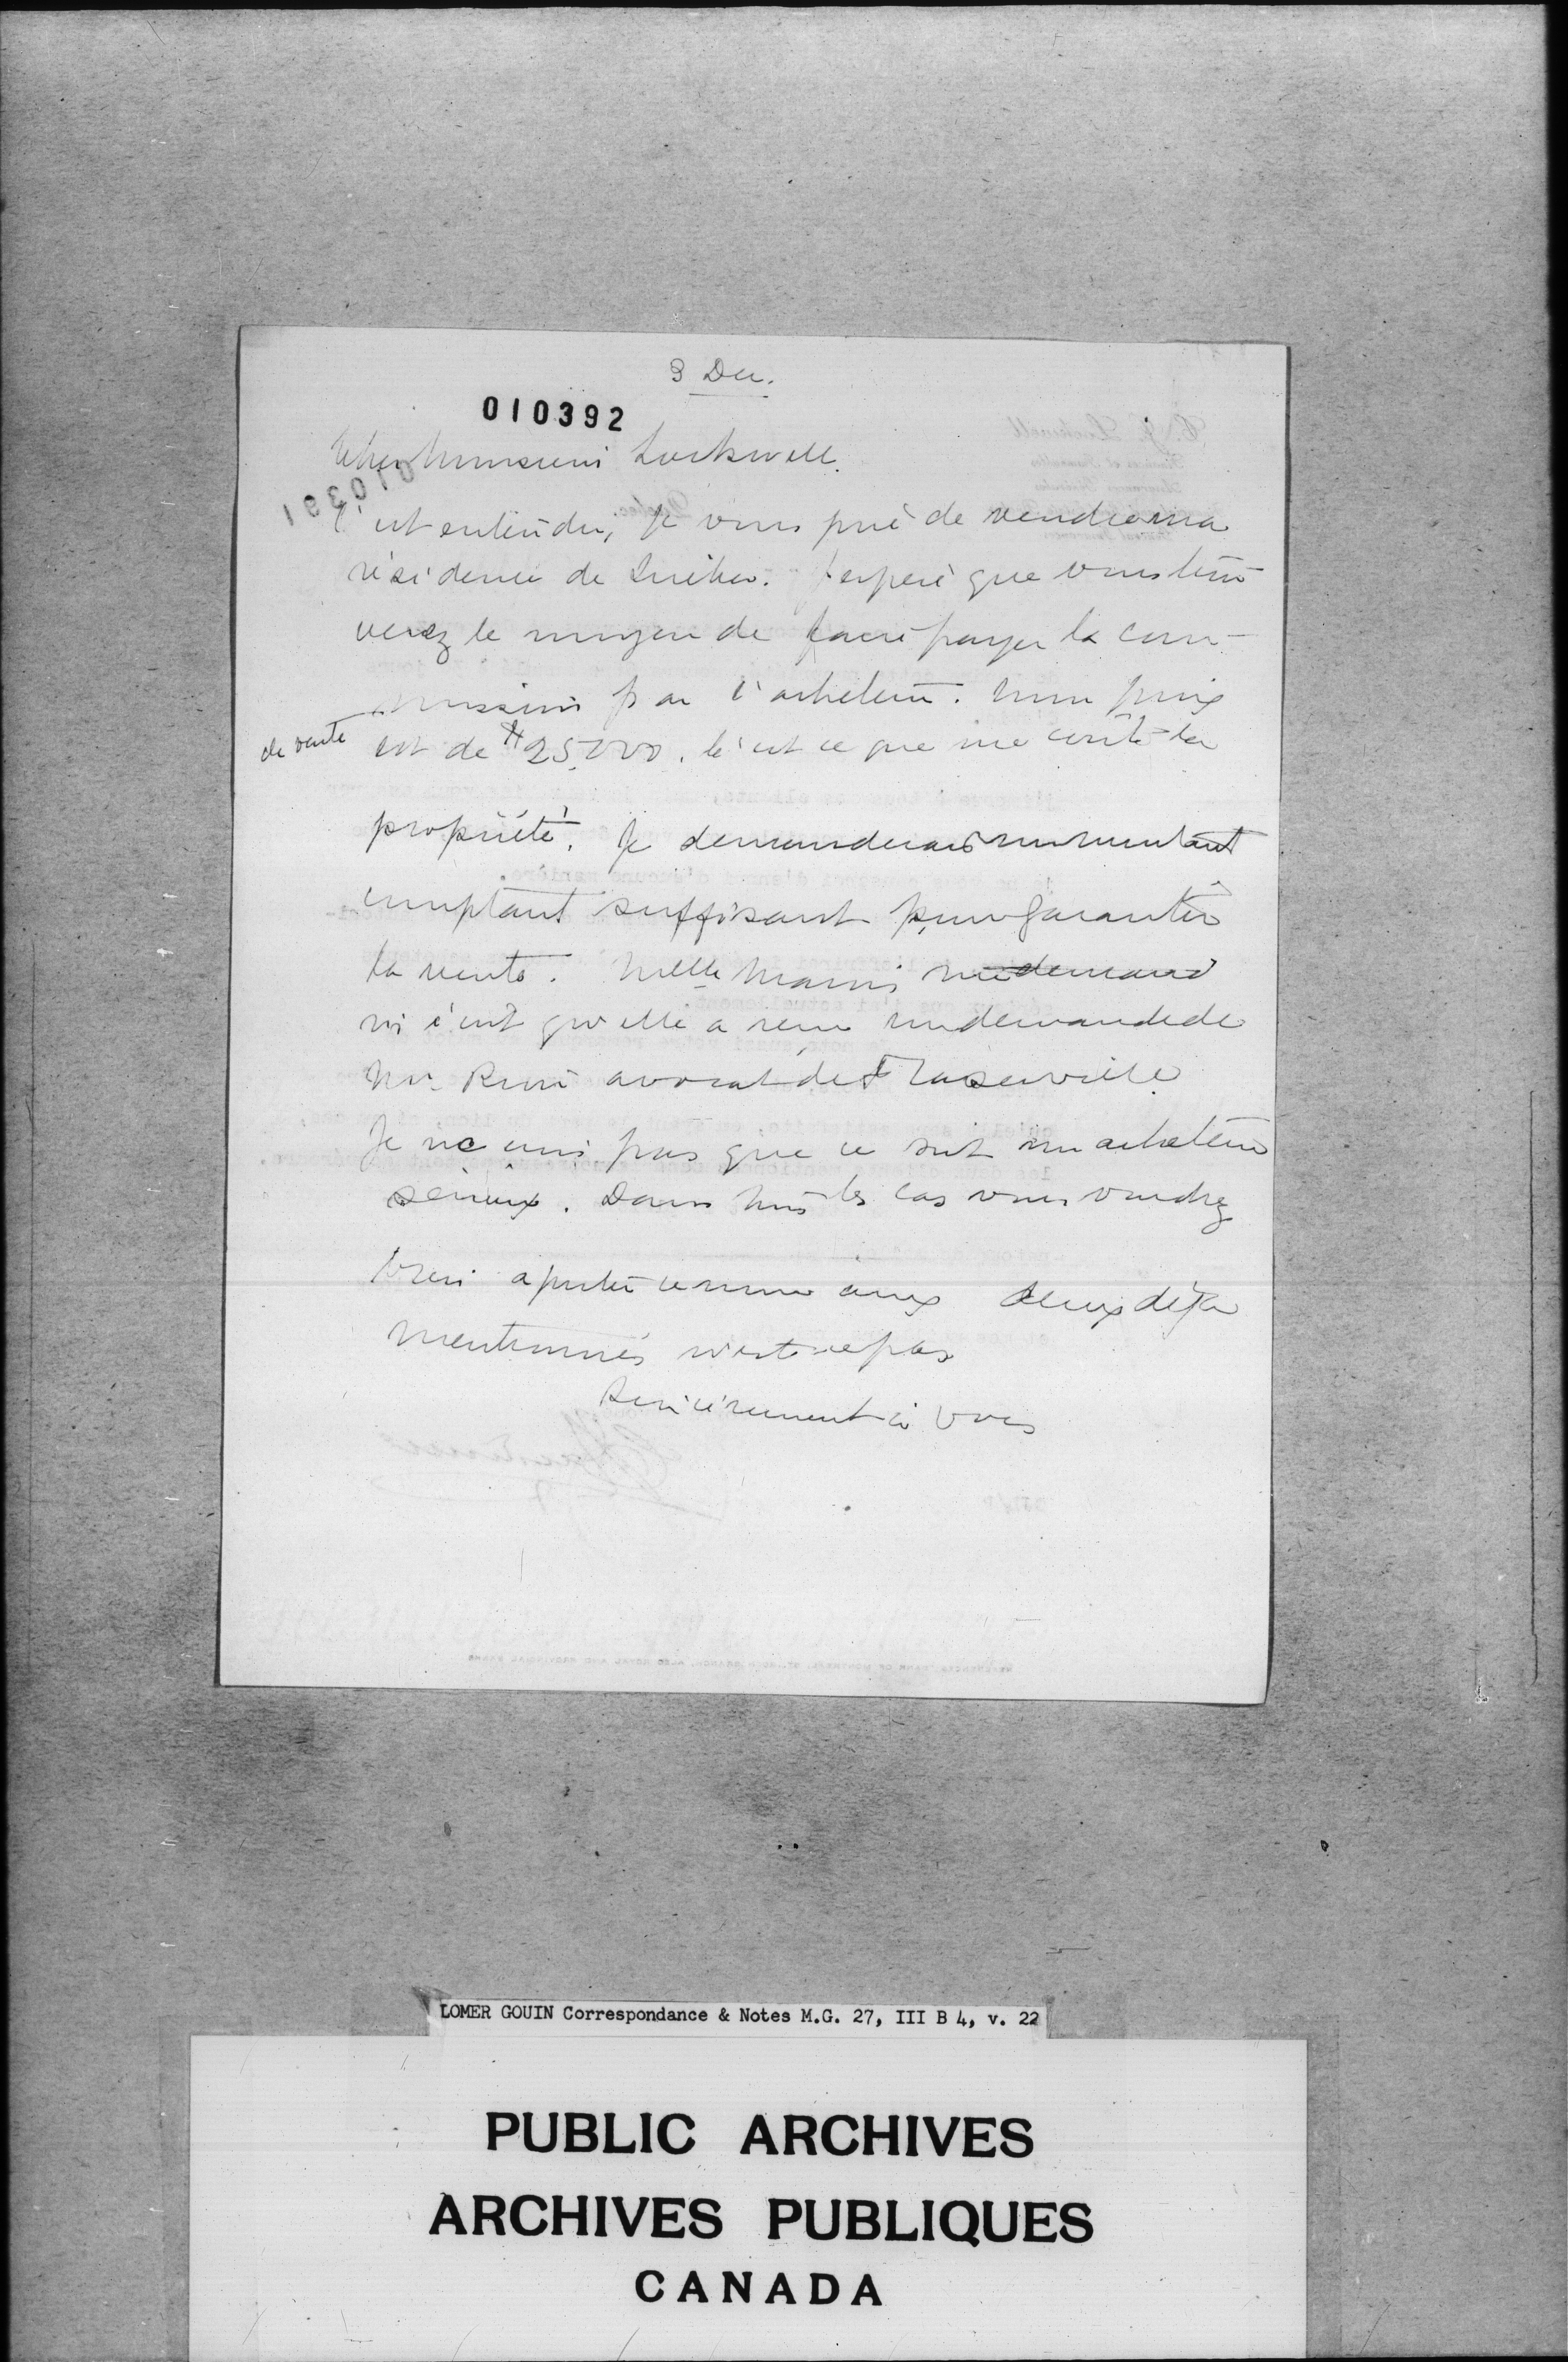 3 Dec.
010392
Cher Monsieur Lockwell.
010391
C'est entendu, je vous prie de vendre ma
résidence de Québec. J'espère que vous trou-
verez le moyen de faire payer la com-
mission par l'acheteur. Mon prix
de vente est de $25,000. C'est ce que me coûte la
propriété. Je demanderais un montant
comptant suffisant pour garantir
la vente. Melle me demand
m'écrit qu'elle a reçu une demande de
Mr. avocat de Fraserville
Je ne crois pas que ce soit un acheteur
sérieux. Dans tous les cas vous voudrez
bien ajouter ce nom aux deux déjà
mentionnés n'est-ce pas
Sincèrement à vous
LOMER GOUIN Correspondance & Notes M.G. 27, III B 4, v. 22
PUBLIC ARCHIVES
ARCHIVES PUBLIQUES
CANADA